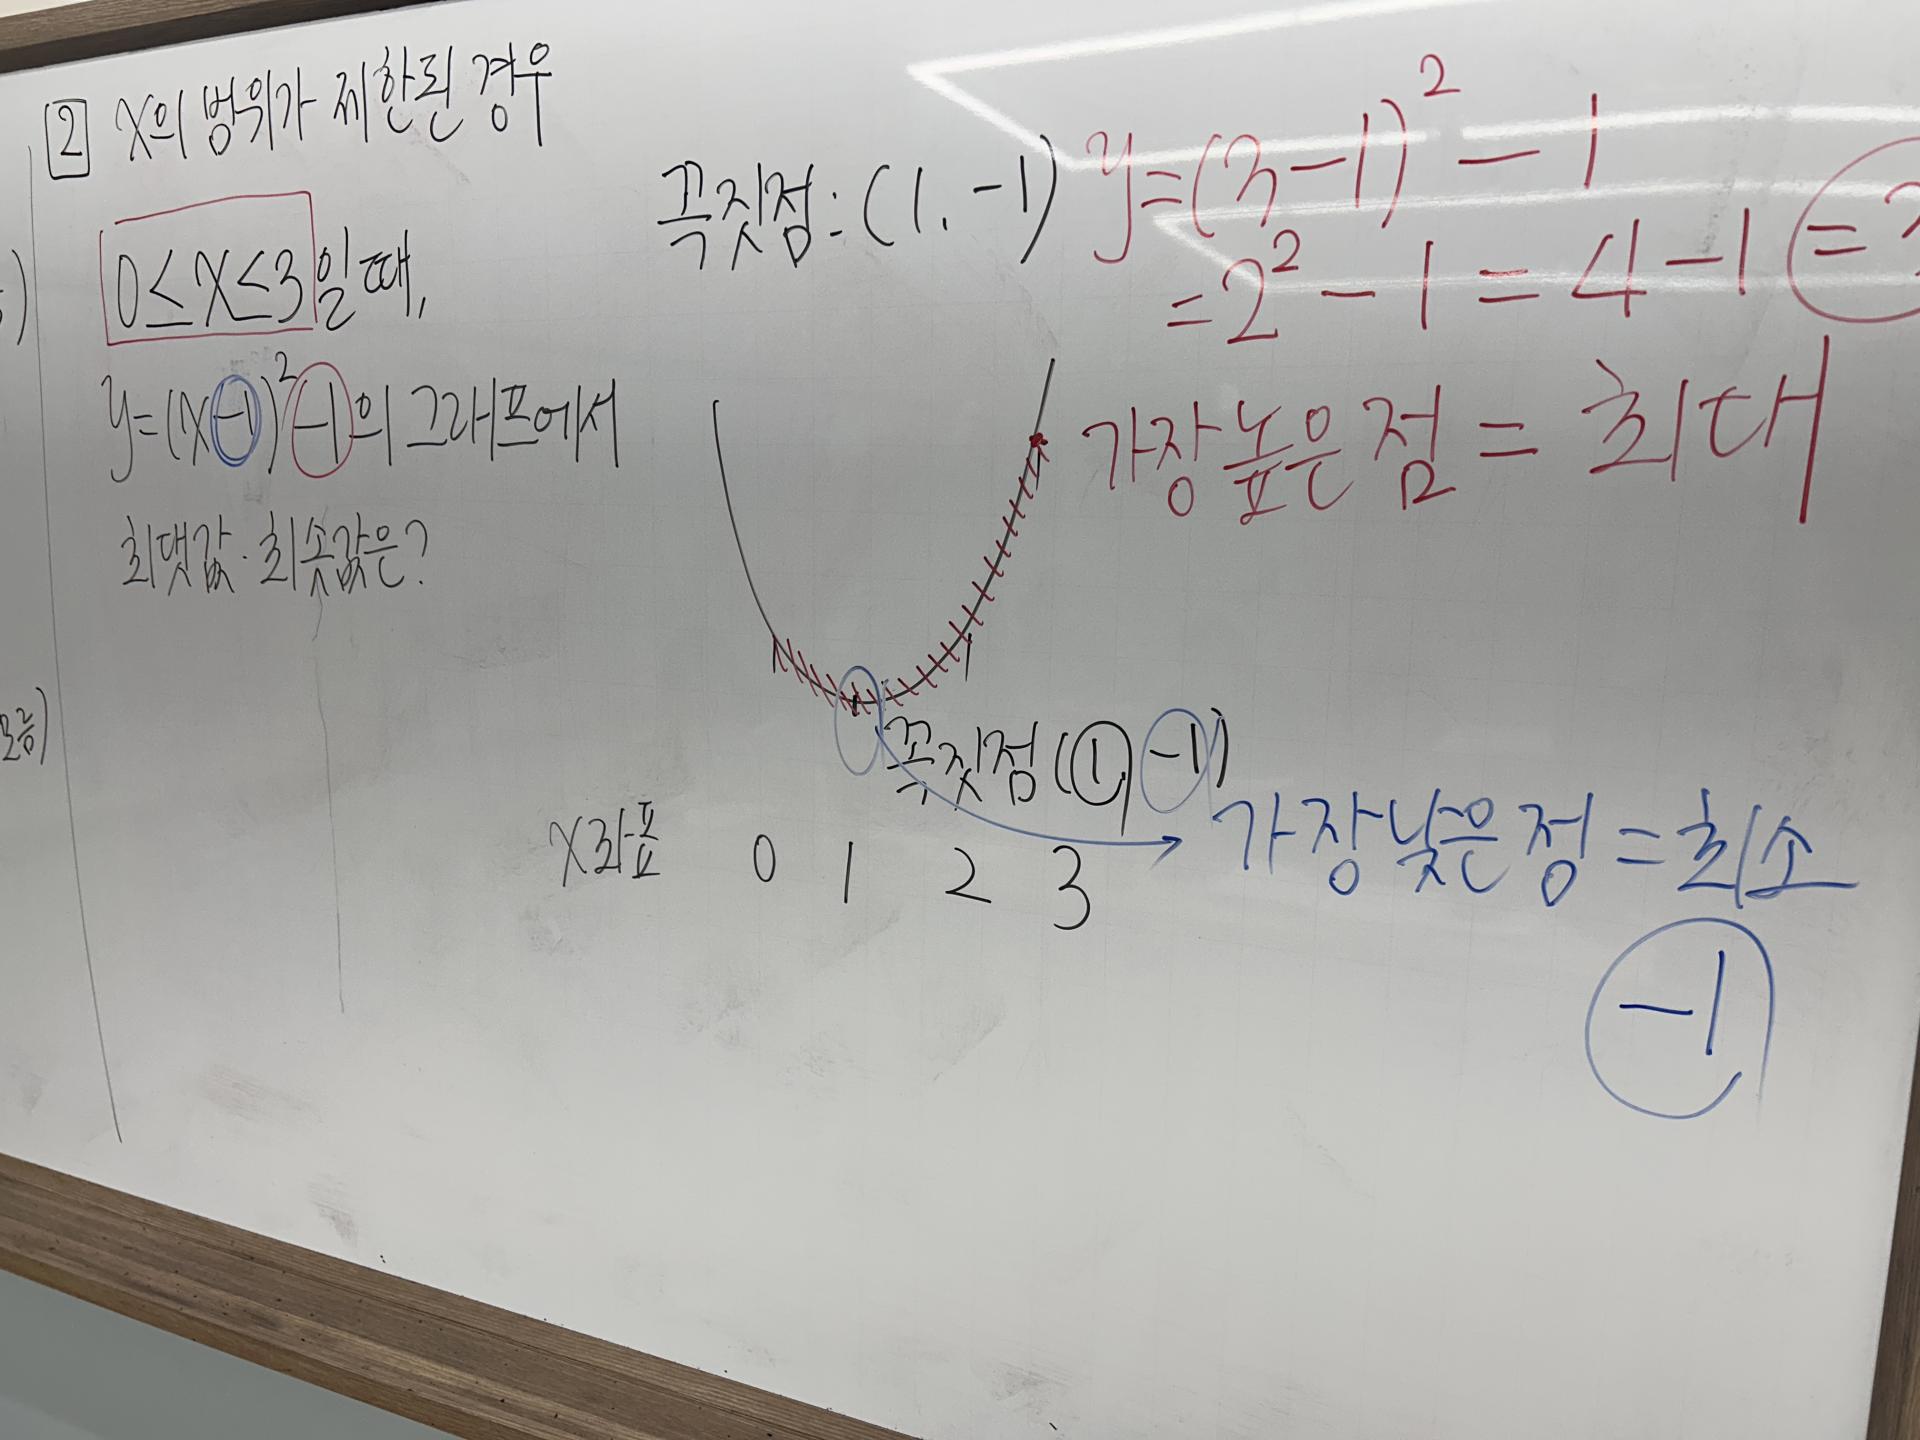 2 x의 범위가 제한된 경우
0≤x≤3일 때,
y=(x-1)²-1의 그래프에서
최댓값·최솟값은?
꼭짓점:(1,-1)
y=(3-1)²-1
=2²-1=4-1=3
가장 높은 점=최대
꼭짓점(1,-1)
x좌표 0 1 2 3
가장낮은정=최소
-1